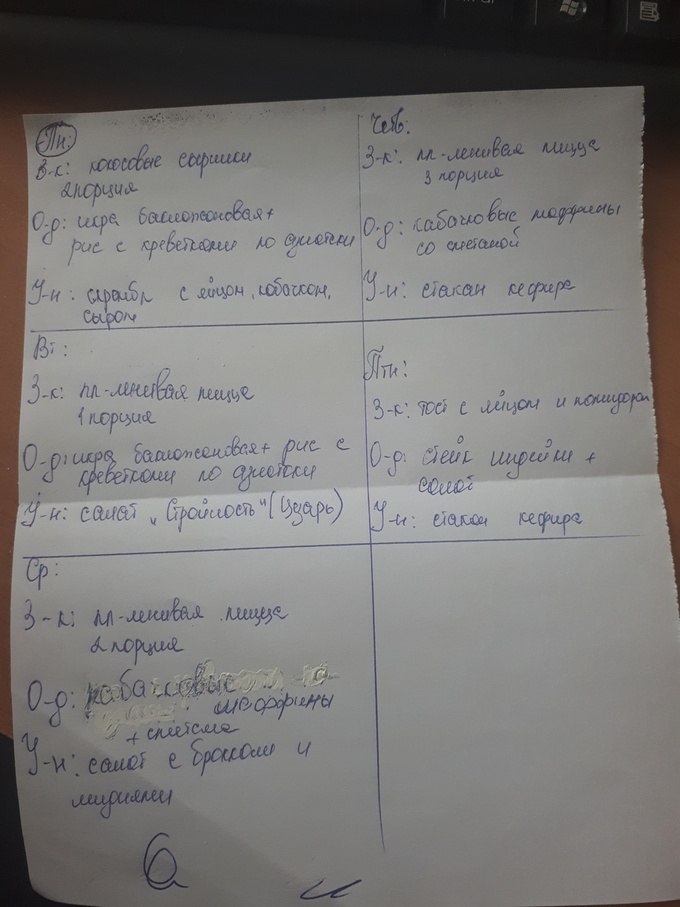 Пн:
З-к: кокосовые сырники
2 порция
О-д: икра баклажановая +
рис с креветками по азиатски
У-н: скрэмбл с яйцом, кабачком,
сыром
Вт:
З-к: пп-ленивая пицца
1 порция
О-д: икра баклажановая + рис с
креветками по азиатски
У-н: салат "Стройность" (Цезарь)
Ср:
З-к: пп-ленивая пицца
2 порция
О-д: кабачковые
маффины
+ сметана
У-н: салат с броколи и
мидиями
Четв:
З-к: пп-ленивая пицца
3 порция
О-д: кабачковые маффины
со сметаной
У-н: стакан кефира
Птн:
З-к: тост с яйцом и помидором
О-д: стейк индейки +
салат
У-н: стакан кефира